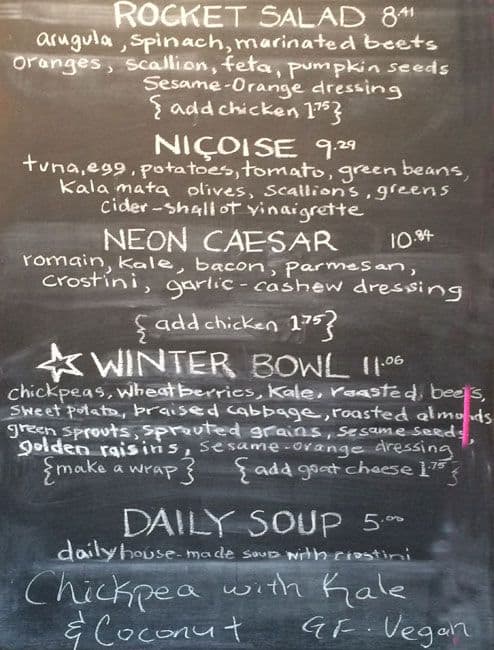 ROCKET SALAD 8.41
arugula, spinach, marinated beets
oranges, scallion, feta, pumpkin seeds
Sesame-Orange dressing
{ add chicken 1.75 }
NIÇOISE 9.29
tuna, egg, potatoes, tomato, green beans,
Kalamata olives, scallions, greens
cider-shallot vinaigrette
NEON CAESAR 10.84
romain, kale, bacon, parmesan,
crostini, garlic-cashew dressing
{ add chicken 1.75 }
☆ WINTER BOWL 11.06
chickpeas, wheatberries, kale, roasted, beets,
sweet potato, braised cabbage, roasted almonds
green sprouts, sprouted grains, sesame seeds,
golden raisins, sesame-orange dressing
{ make a wrap } { add goat cheese 1.75 }
DAILY SOUP 5.00
daily house-made soup with crostini
Chickpea with Kale
& Coconut GF. Vegan